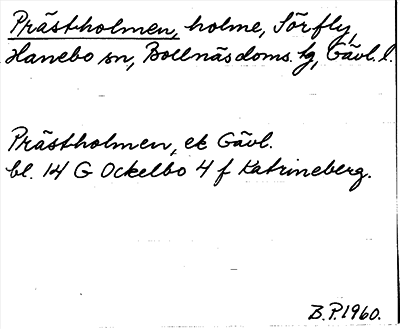 Prästholmen, holme, Sörfly,
Hanebo sn, Bollnäs doms. tg, Gävl. l.
Prästholmen, ek Gävl.
bl. 14 G Ockelbo 4 f Katrineberg.
B.P.1960.